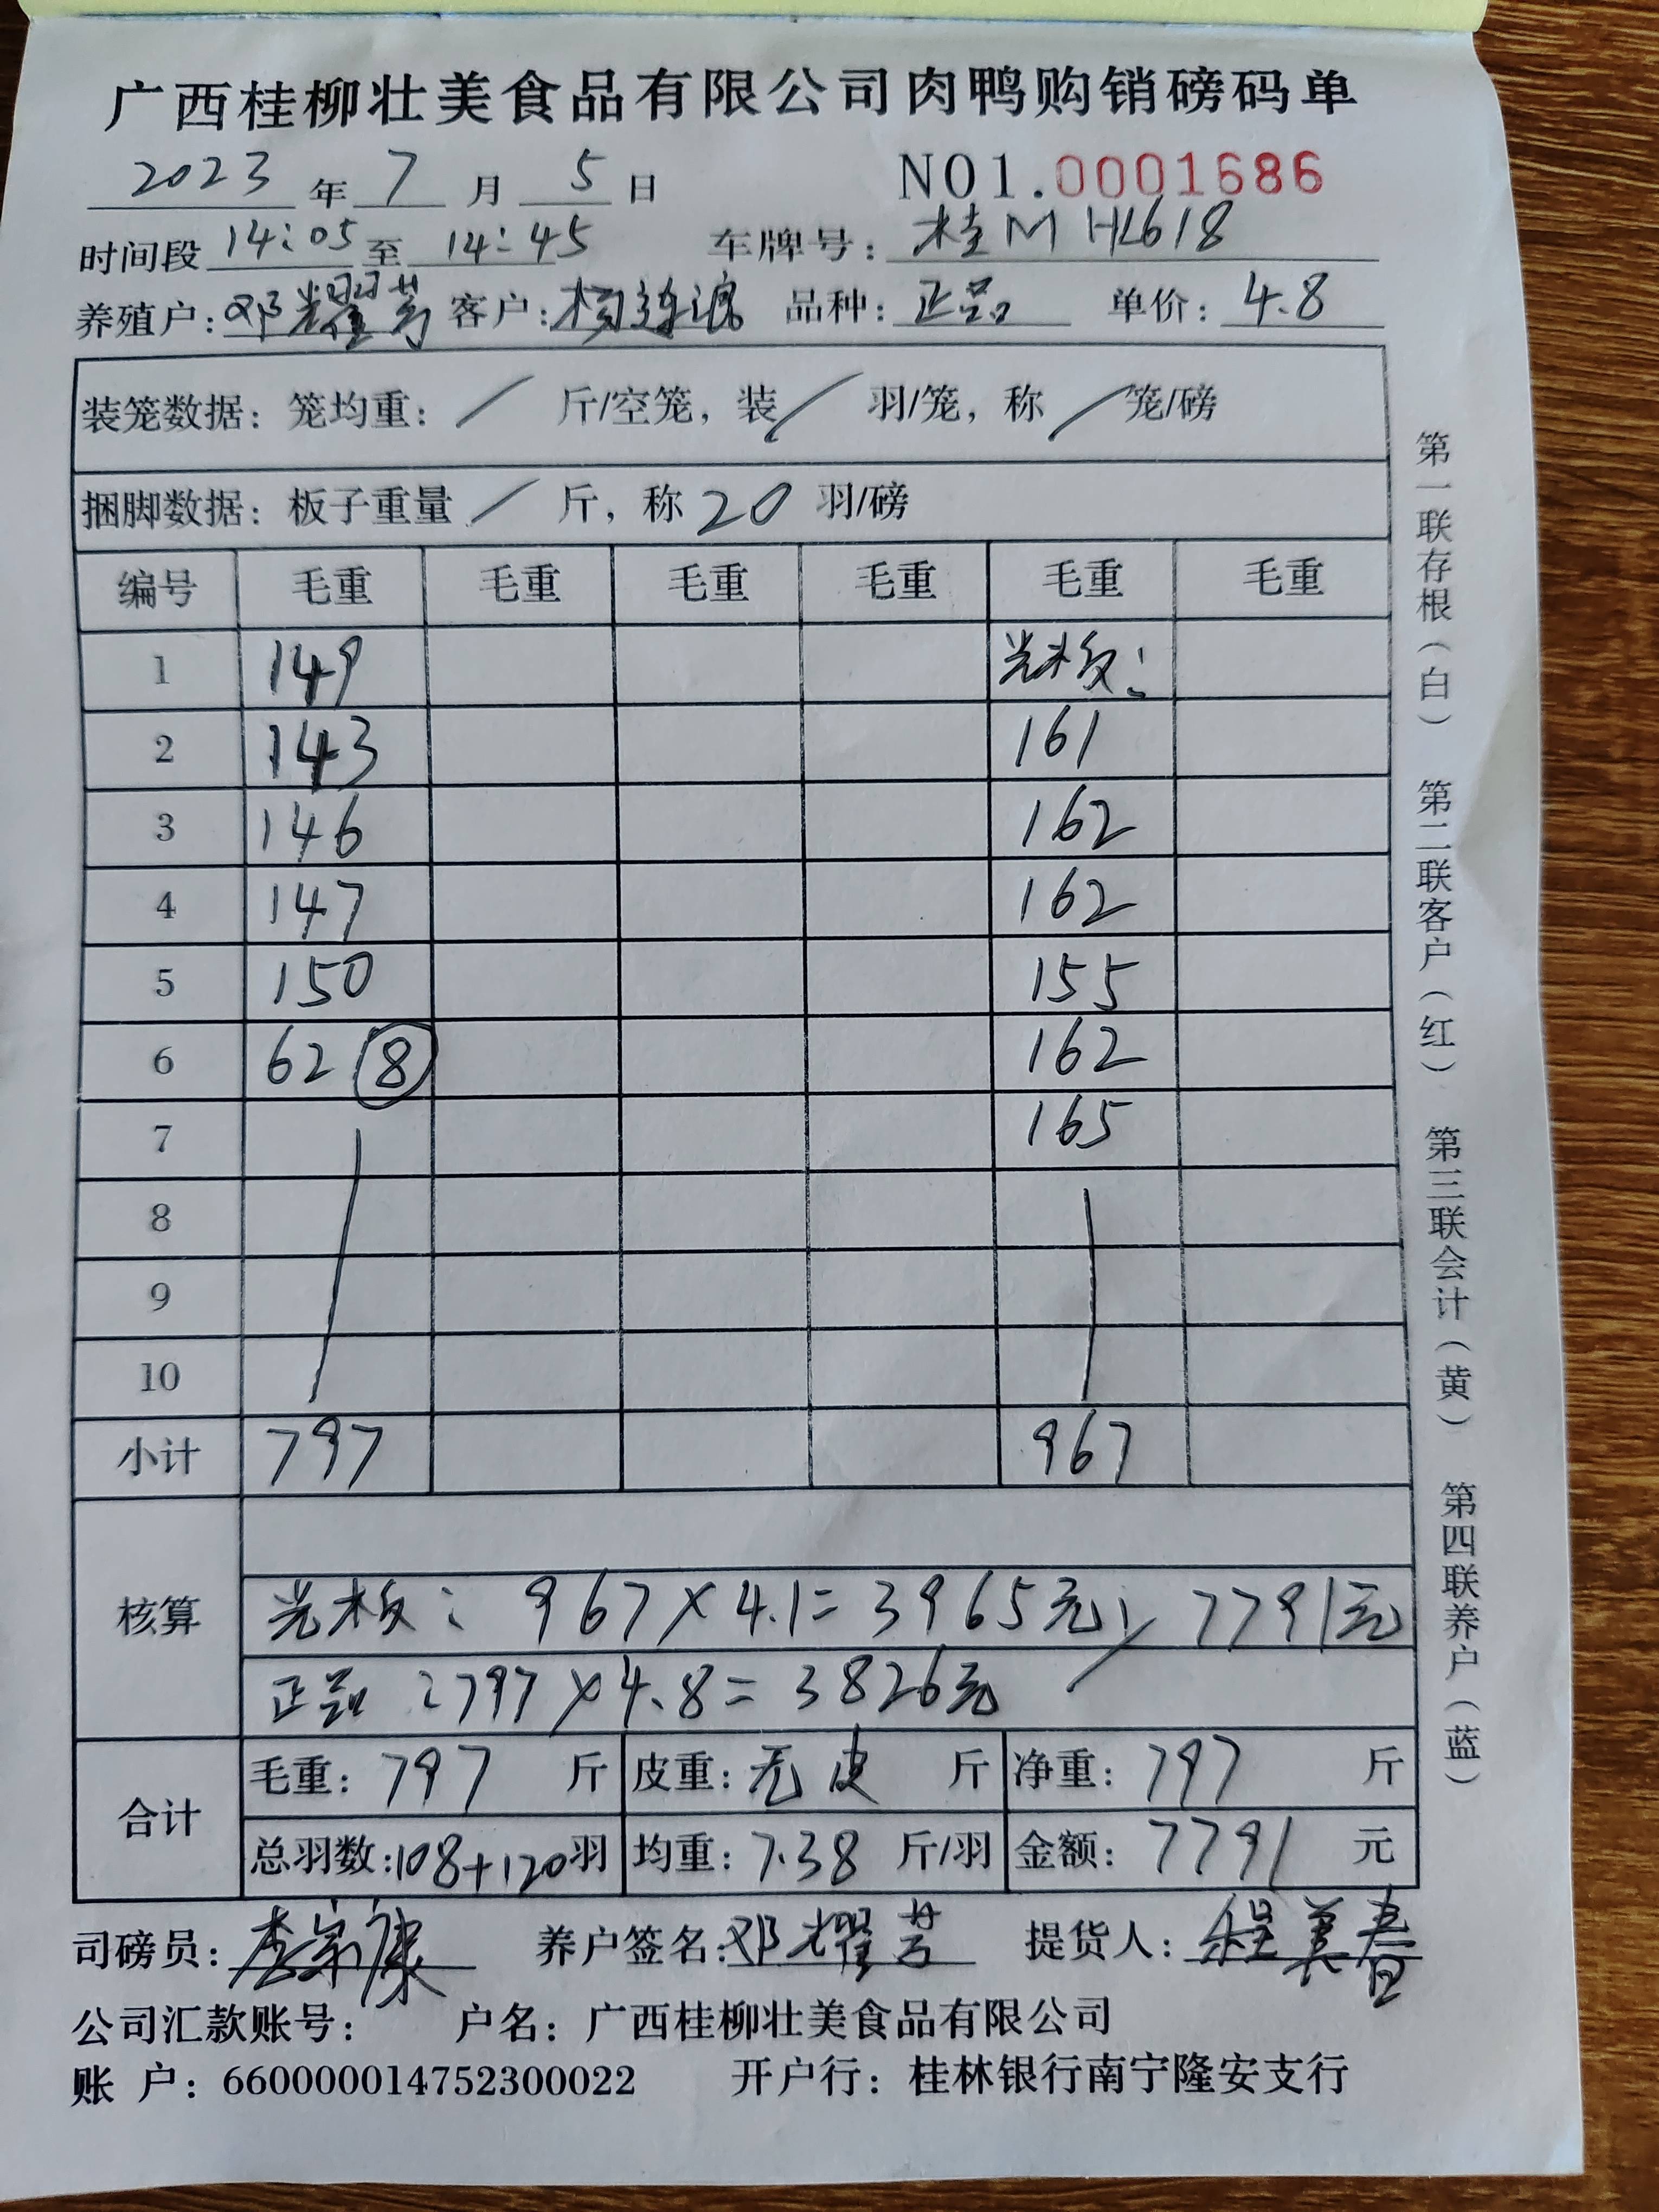 广西桂柳壮美食品有限公司肉鸭购销磅码单
2023 年 7 月 5 日 NO1.0001686
时间段 14:05 至 14:45 车牌号: 桂M HL618
养殖户: 邓耀芳 客户: 杨 品种: 正品 单价: 4.8
装笼数据: 笼均重: / 斤/空笼, 装 / 羽/笼, 称 / 笼/磅
捆脚数据: 板子重量 / 斤, 称 20 羽/磅
编号 毛重 毛重 毛重 毛重 毛重 毛重
1 149 光板:
2 143 161
3 146 162
4 147 162
5 150 155
6 62 ⑧ 162
7 165
8
9
10
小计 797 967
核算
光板: 967×4.1=3965元; 7791元
正品:797×4.8=3826元
合计
毛重: 797 斤 皮重: 无皮 斤 净重: 797 斤
总羽数:108+120羽 均重: 7.38 斤/羽 金额: 7791 元
司磅员: 李宗康 养户签名: 邓耀芳 提货人: 程美春
公司汇款账号: 户名: 广西桂柳壮美食品有限公司
账 户: 660000014752300022 开户行: 桂林银行南宁隆安支行
第一联存根(白) 第二联客户(红) 第三联会计(黄) 第四联养户(蓝)